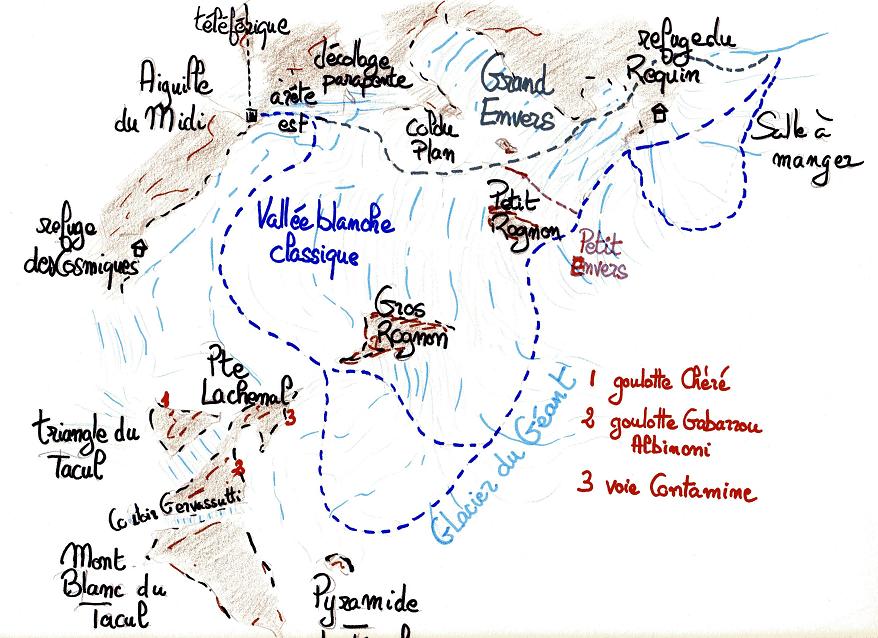 téléférique
décollage
parapente
refuge du
Requin
Aiguille
du Midi
arête
est
Grand
Envers
col du
Plan
Salle à
manger
refuge
des Cosmiques
Vallée blanche
classique
Petit
Rognon
Petit
Envers
Gros
Rognon
Pte
Lachenal
1
3
2
triangle du
Tacul
Couloir Gervassutti
Glacier du Géant
1 goulotte Chéré
2 goulotte Gabarrou
Albinoni
3 voie Contamine
Mont
Blanc du
Tacul
Pyramide